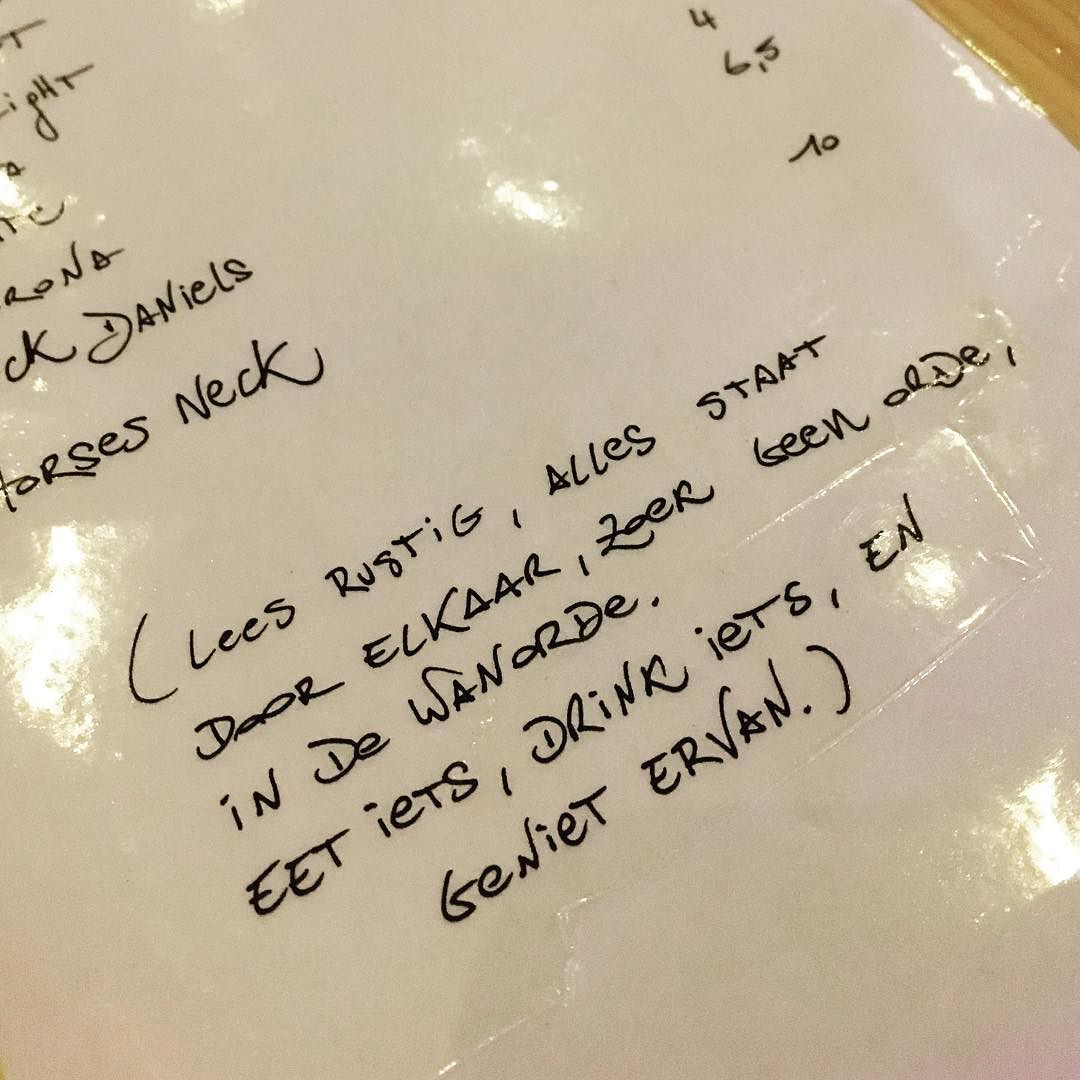 4
6,5
10
DANiels
Neck
(Lees RUSTiG, ALLES STAAT
DOOR ELKAAR, ZOEK GEEN ORDE,
iN De WANORDE.
EET iETS, DRiNK iETS, EN
GENiET ERVAN.)